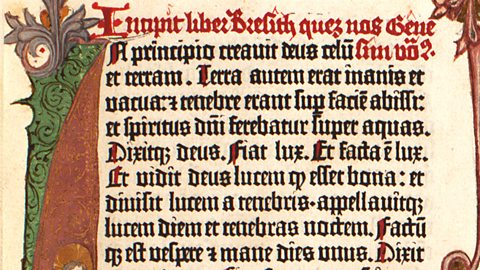 Incipit liber Bresith quez nos Gene
A principio creauit deus celū sim dōꝰ.
et terram. Terra autem erat inanis et
vacua: ⁊ tenebre erant suꝑ faciē abissi:
et spiritus dn̄i ferebatur super aquas.
Dixitqꝫ deus. Fiat lux. Et facta ē lux.
Et vidit deus lucem ꝙ esset bona: et
diuisit lucem a tenebris‧appellauitqꝫ
lucem diem et tenebras noctem. Factū
qꝫ est vespere ⁊ mane dies vnus. Dixit